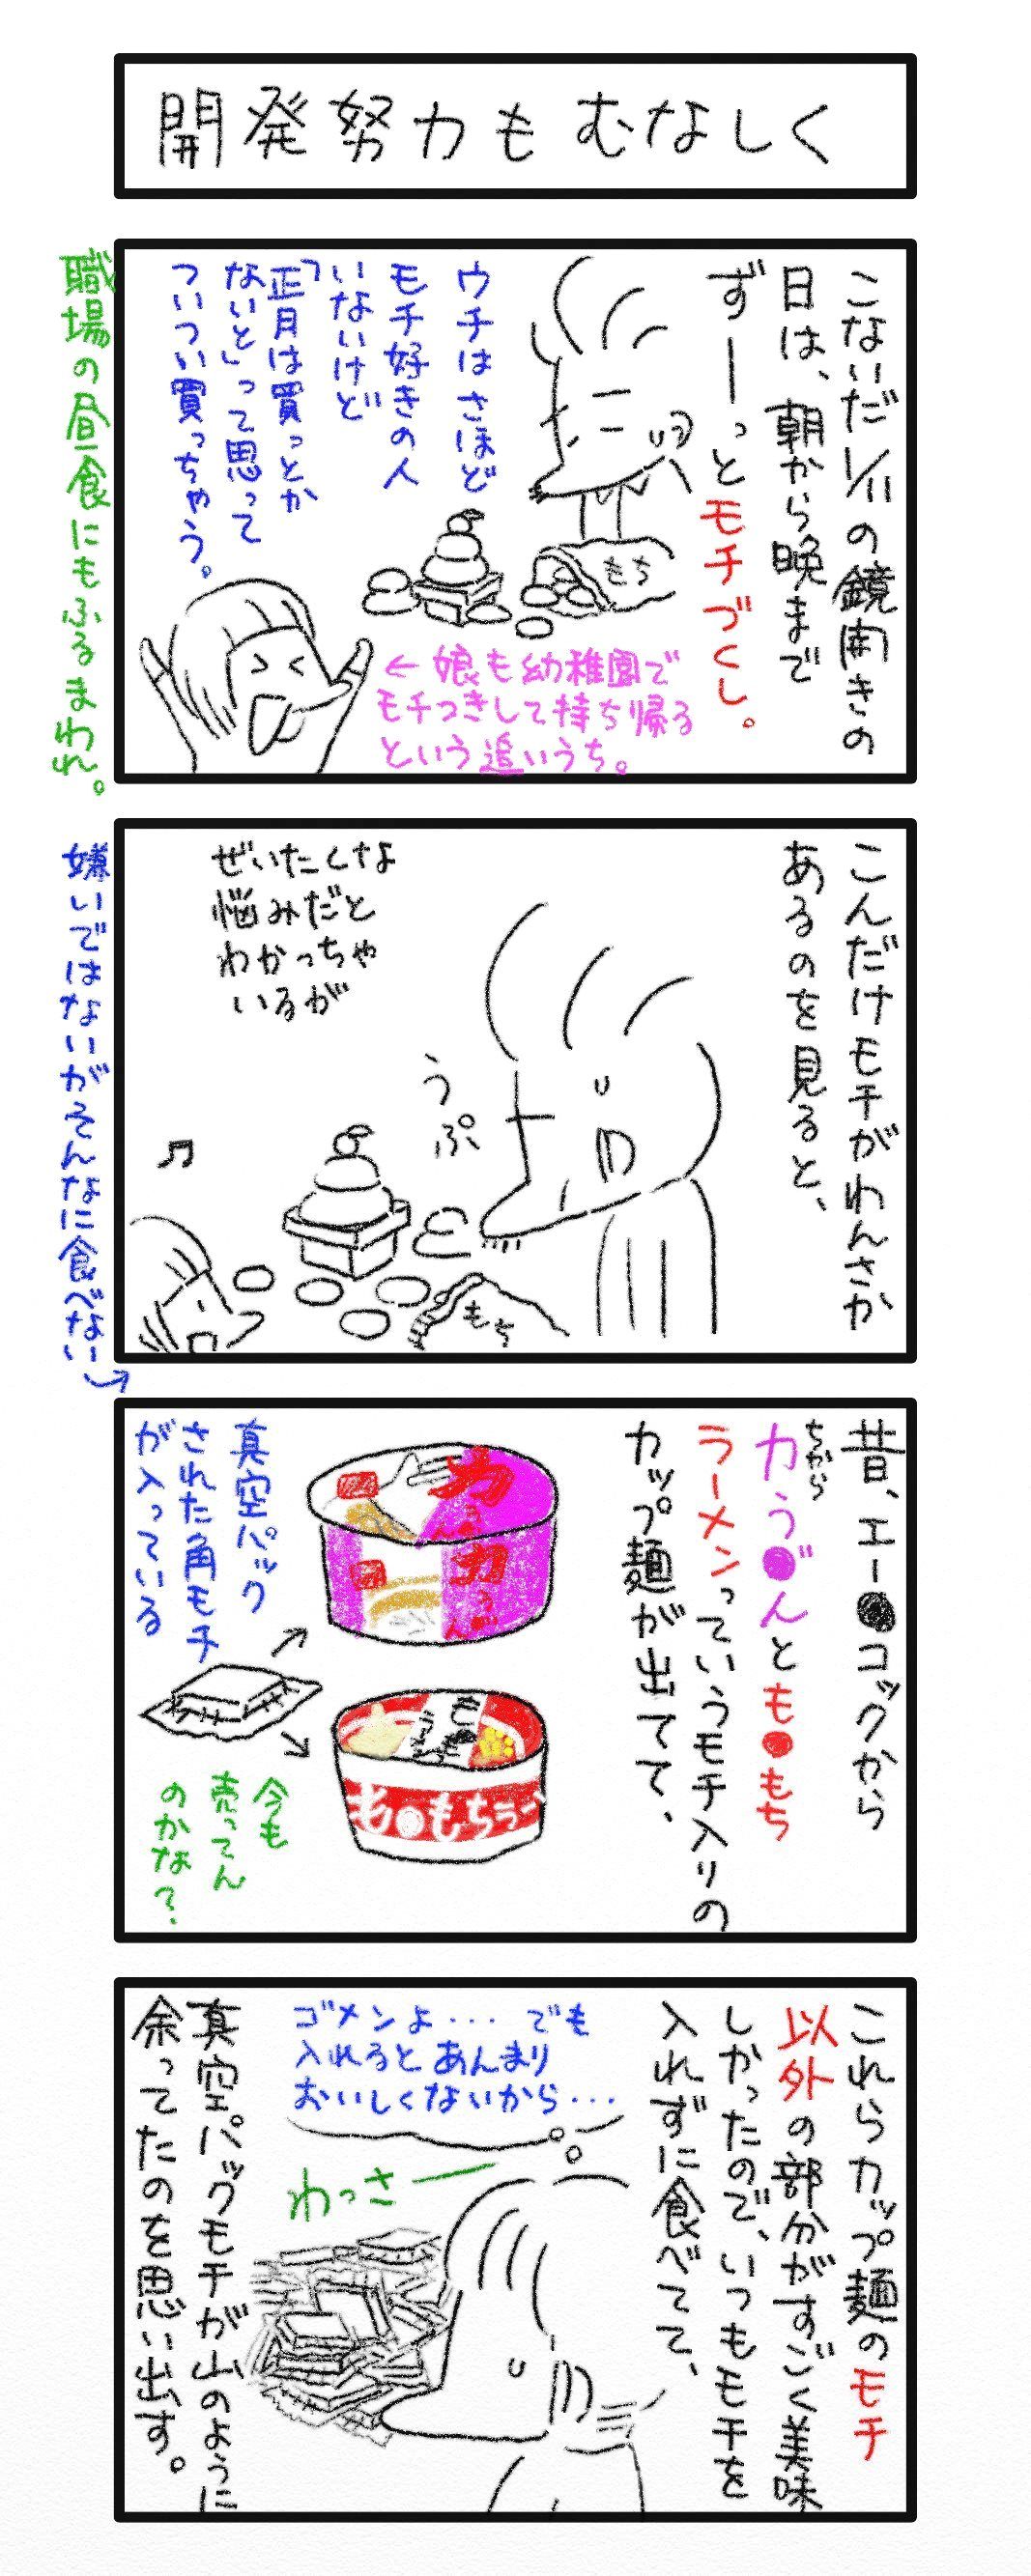 開発努力もむなしく
こないだ1/11の鏡開きの
日は、朝から晩まで
ずーっとモチづくし。
ウチはさほど
モチ好きの人
いないけど
「正月は買っとか
ないと」って思って
ついつい買っちゃう。
もち
←娘も幼稚園で
モチつきして持ち帰る
という追いうち。
職場の昼食にもふるまわれ。
こんだけモチがわんさか
あるのを見ると、
ぜいたくな
悩みだと
わかっちゃ
いるが
うぷ
もち
嫌いではないがそんなに食べない
昔、エー●コックから
ちから
力う●゛んとも●もち
ラーメンっていうモチ入りの
カップ麺が出てて、
力う
ん
力う
ん
も●もちラー
真空パック
された角モチ
が入っている
今も
売ってん
のかな?
これらカップ麺のモチ
以外の部分がすごく美味
しかったので、いつもモチを
入れずに食べてて、
ゴメンよ・・・でも
入れるとあんまり
おいしくないから・・・
わっさー
真空パックモチが山のように
余ってたのを思い出す。